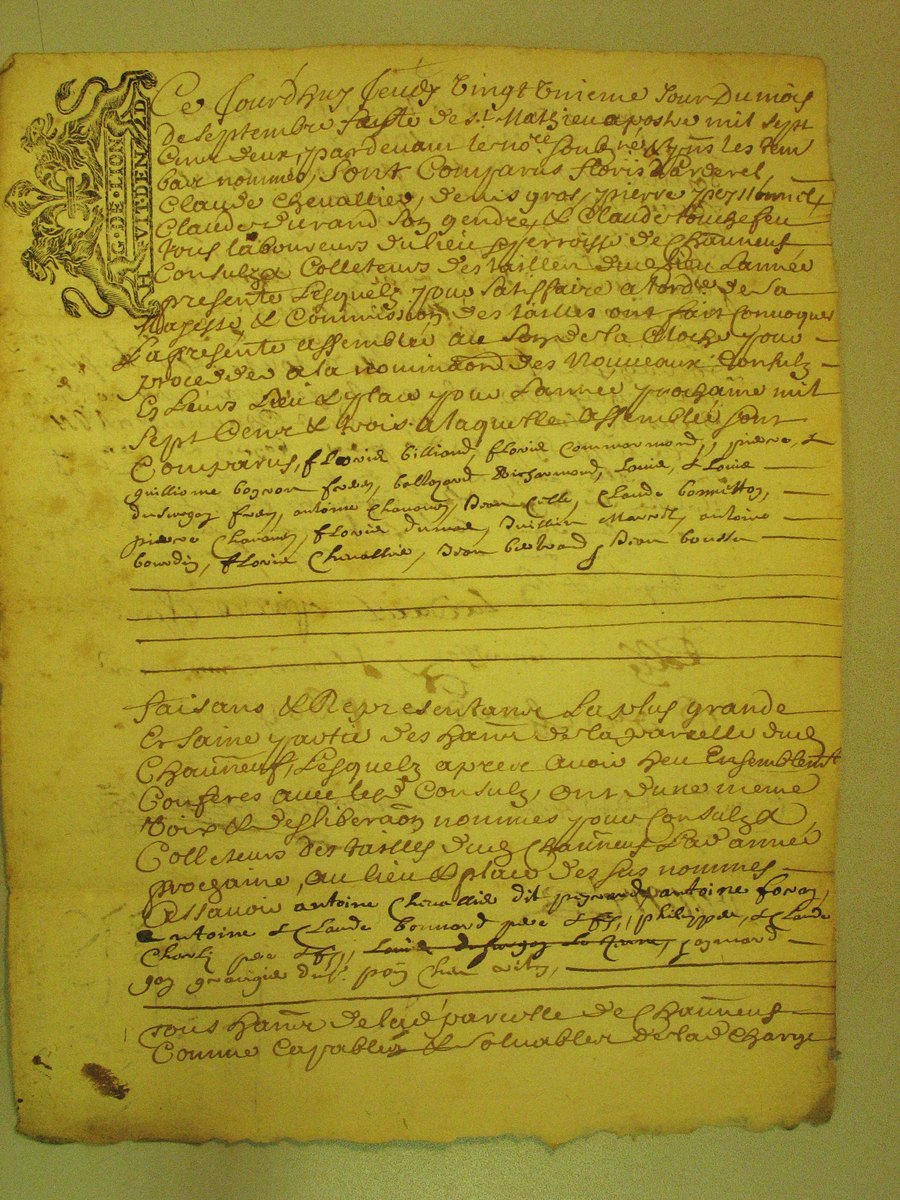 G. DE. LION
H VIT. DEN. 2D
Ce Jourdhuy Jeudy Vingt Unieme Jour Du mois
de Septembre faste de St Mathieu apostre mil sept
Cent deux pardevant le nore Soubzné & les tem
bas nommes, Sont Comparus floris Varderel,
Claude Chevallier, denis gros, pierre
Claude durand Son gendre & Claude touchefeu
tous laboureurs du lieu & perroisse de Chaũneuf
Consulz & Colleteurs des tailles dud lieu Lannée
presente Lesquelz pour Satisffaire a lordre de Sa
Majesté & Commission des tailles ont fait Convoquer
La presente assemblée au Son de la Cloche pour
proceder a la nominaon des Nouveaux Consulz
En Leurs Lieu & place pour Lannée prochaine mil
Sept Cents & trois a laquelle assemblée sont
Comparus, fLorie billiard, fLorie Commarmond, pierre &
guilliome freres, baltezard Richarmond, Louis & Louis
freres, antoine Chavanes, Jean Colle, Claude
pierre Chavanes, fLorie dumas, antoine
bourdin, fLorie Chevallier, Jean bertrand, Jean
faisans & Representans La plus grande
Et Saine partie des hans de la parcelle dud
Chaũneuf, Lesquelz apres avoir heu Ensemblemt
Conferes avec lesd Consulz, ont dune meme
Voix & desliberaon nommes pour Consulz &
Colleteurs des tailles dud Chaũneuf Lad année
prochaine, au lieu & place des sus nommes
assavoir antoine Chevallier dit antoine
antoine & Claude bonnard pere & ffs, philippe & Claude
Charle pere & ffs,
tous hans de lad parcelle de Chaũneuf
Comme Capables & Solvables de lad Charge